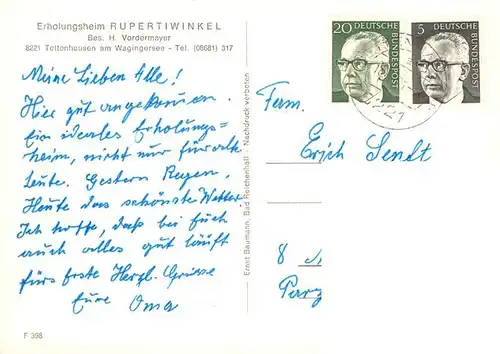 Erholungsheim RUPERTIWINKEL
Bes. H. Vordermayer
8221 Tettenhausen am Wagingersee - Tel. (08681) 317
Meine Lieben Alle!
Hier gut angekommen.
Ein ideales Erholungs=
heim, nicht nur für alte
Leute. Gestern Regen,
Heute das schönste Wetter.
Ich hoffe, daß bei Euch
auch alles gut läuft
fürs erste Herzl. Grüsse
Eure Oma
F 398
Ernst Baumann, Bad Reichenhall - Nachdruck verboten
20 DEUTSCHE BUNDESPOST
5 DEUTSCHE BUNDESPOST
Fam.
Erich Sendt
8